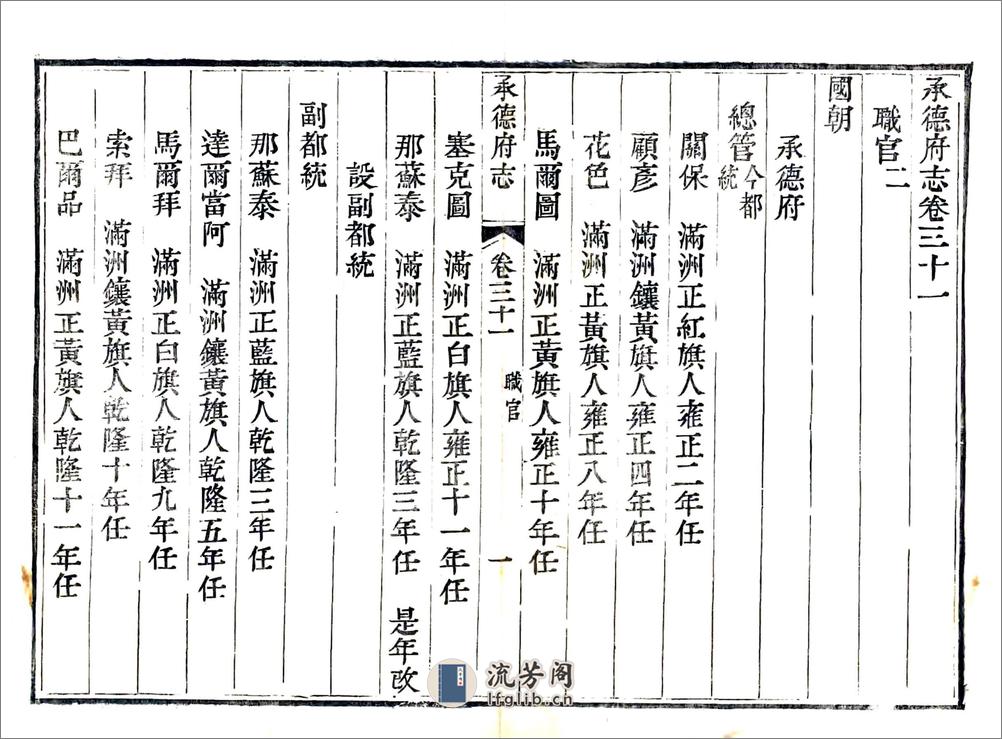 承德府志卷三十一
職官二
國朝
承德府
總管今都統
關保　滿洲正紅旗人雍正二年任
顧彥　滿洲鑲黃旗人雍正四年任
花色　滿洲正黃旗人雍正八年任
馬爾圖　滿洲正黃旗人雍正十年任
承德府志　卷三十一　職官　一
塞克圖　滿洲正白旗人雍正十一年任
那蘇泰　滿洲正藍旗人乾隆三年任　是年改
設副都統
副都統
那蘇泰　滿洲正藍旗人乾隆三年任
達爾當阿　滿洲鑲黃旗人乾隆五年任
馬爾拜　滿洲正白旗人乾隆九年任
索拜　滿洲鑲黃旗人乾隆十年任
巴爾品　滿洲正黃旗人乾隆十一年任
流芳阁
lfglib.cn